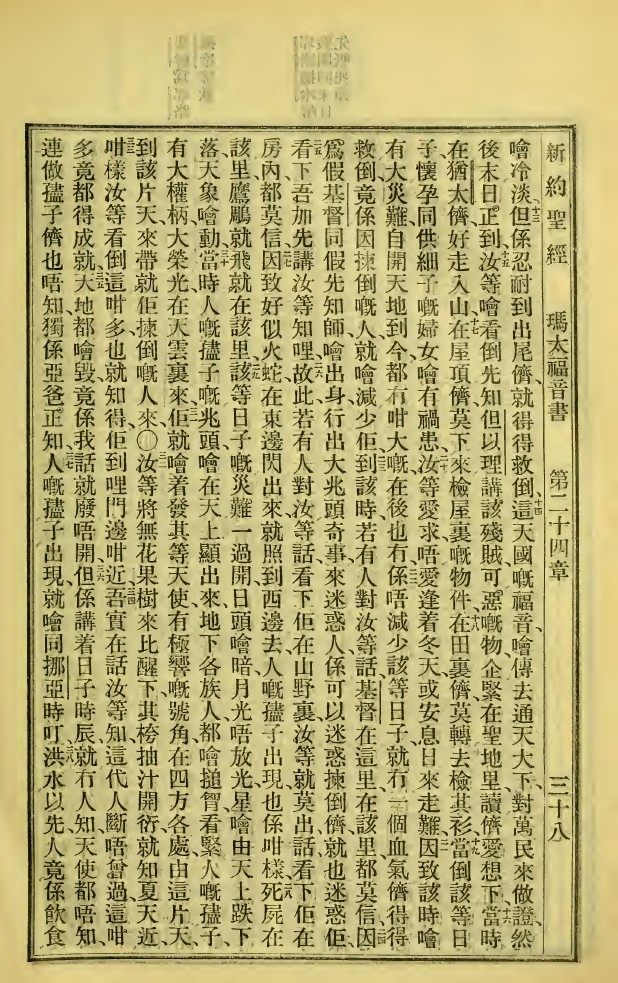 新約聖經 瑪太福音書 第二十四章 三十八
噲冷淡、十三但係忍耐到出尾儕、就得得救倒、十四這天國嘅福音、噲傳去通天大下、對萬民來做證、然
後末日正到、十五汝等噲看倒先知但以理講該殘賊可惡嘅物企緊在聖地里、讀儕愛想下、十六當時
在猶太儕、好走入山、十七在屋項儕、莫下來檢屋裏嘅物件、十八在田裏儕、莫轉去檢其衫、十九當倒該等日
子、懷孕同供細子嘅婦女、噲有禍患、二十汝等愛求唔愛逢着冬天、或安息日來走難、二一因致該時噲
有大災難、自開天地到今、都冇咁大嘅、在後也冇、二二係唔減少該等日子、就冇一個血氣儕得得
救倒、竟係因揀倒嘅人、就噲減少佢、二三到該時若有人對汝等話、基督在這里、在該里、都莫信、二四因
爲假基督同假先知師、噲出身行出大兆頭奇事、來迷惑人、係可以迷惑揀倒儕、就也迷惑佢、
二五看下吾加先講汝等知哩、二六故此若有人對汝等話、看下佢在山野裏、汝等就莫出、話看下佢在
房內、都莫信、二七因致好似火蛇在東邊閃出來、就照到西邊去、人嘅孻子出現、也係咁樣、二八死屍在
該里、鷹鵰就飛就在該里、二九該等日子嘅災難一過開、日頭噲暗、月光唔放光、星噲由天上跌下
落、天象噲動、三十當時人嘅孻子嘅兆頭、噲在天上顯出來、地下各族人都噲搥胷、看緊人嘅孻子、
有大權柄大榮光、在天雲裏來、三一佢就噲着發其等天使、有極響嘅號角、在四方各處、由這片天
到該片天、來帶就佢揀倒嘅人來、〇三二汝等將無花果樹來比醒下、其桍抽汁開䓲、就知夏天近、
三三咁樣汝等看倒這咁多、也就知得佢到哩門邊咁近、三四吾實在話汝等知、這代人斷唔曾過、這咁
多竟都得成就、三五大地都噲毀、竟係我話就廢唔開、三六但係講着日子時辰、就冇人知、天使都唔知、
連做孻子儕也唔知、獨係亞爸正知、三七人嘅孻子出現、就噲同挪亞時、三八叮洪水以先、人竟係飲食